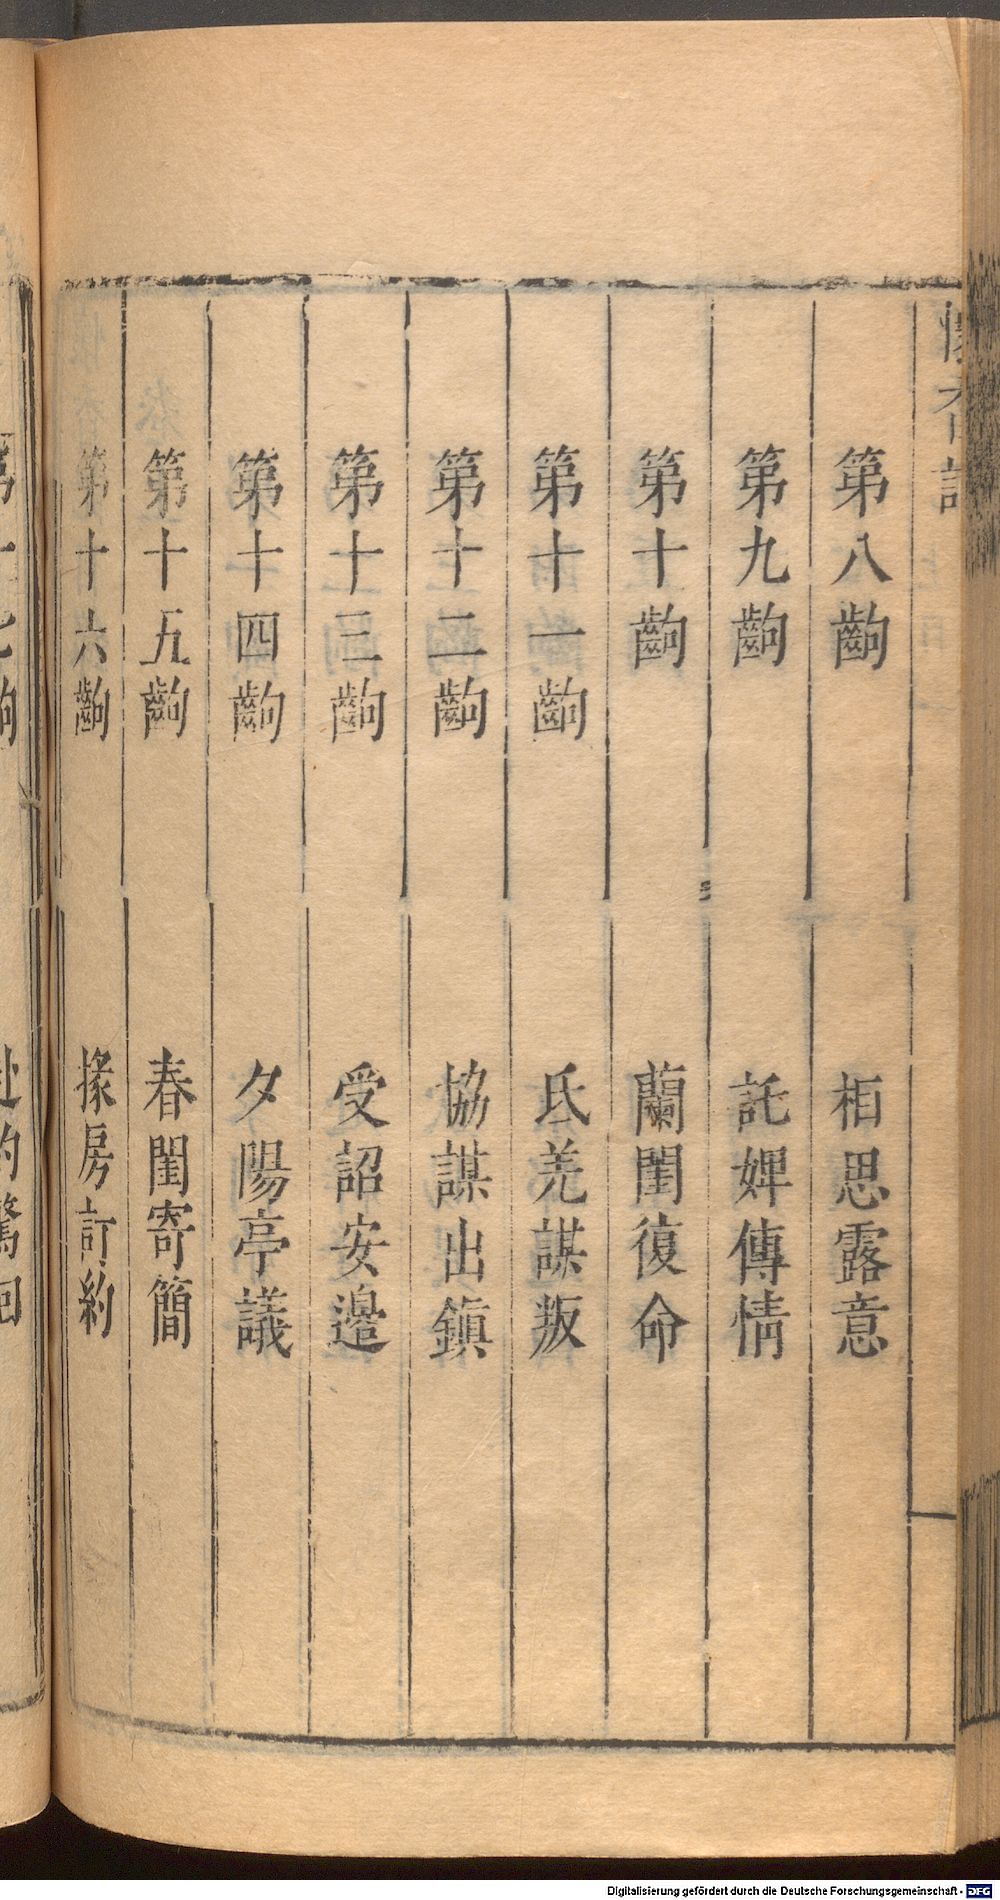 懷香記
第八齣　相思露意
第九齣　託婢傳情
第十齣　蘭閨復命
第十一齣　氐羌謀叛
第十二齣　協謀出鎮
第十三齣　受詔安邊
第十四齣　夕陽亭議
第十五齣　春閨寄簡
第十六齣　掾房訂約
第十七齣　赴約驚回
Digitalisierung gefördert durch die Deutsche Forschungsgemeinschaft - DFG